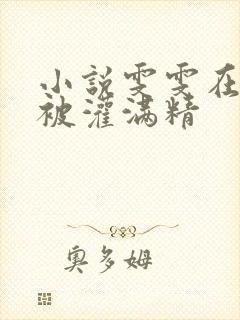 小説雯雯在
被灌满精
奥多姆